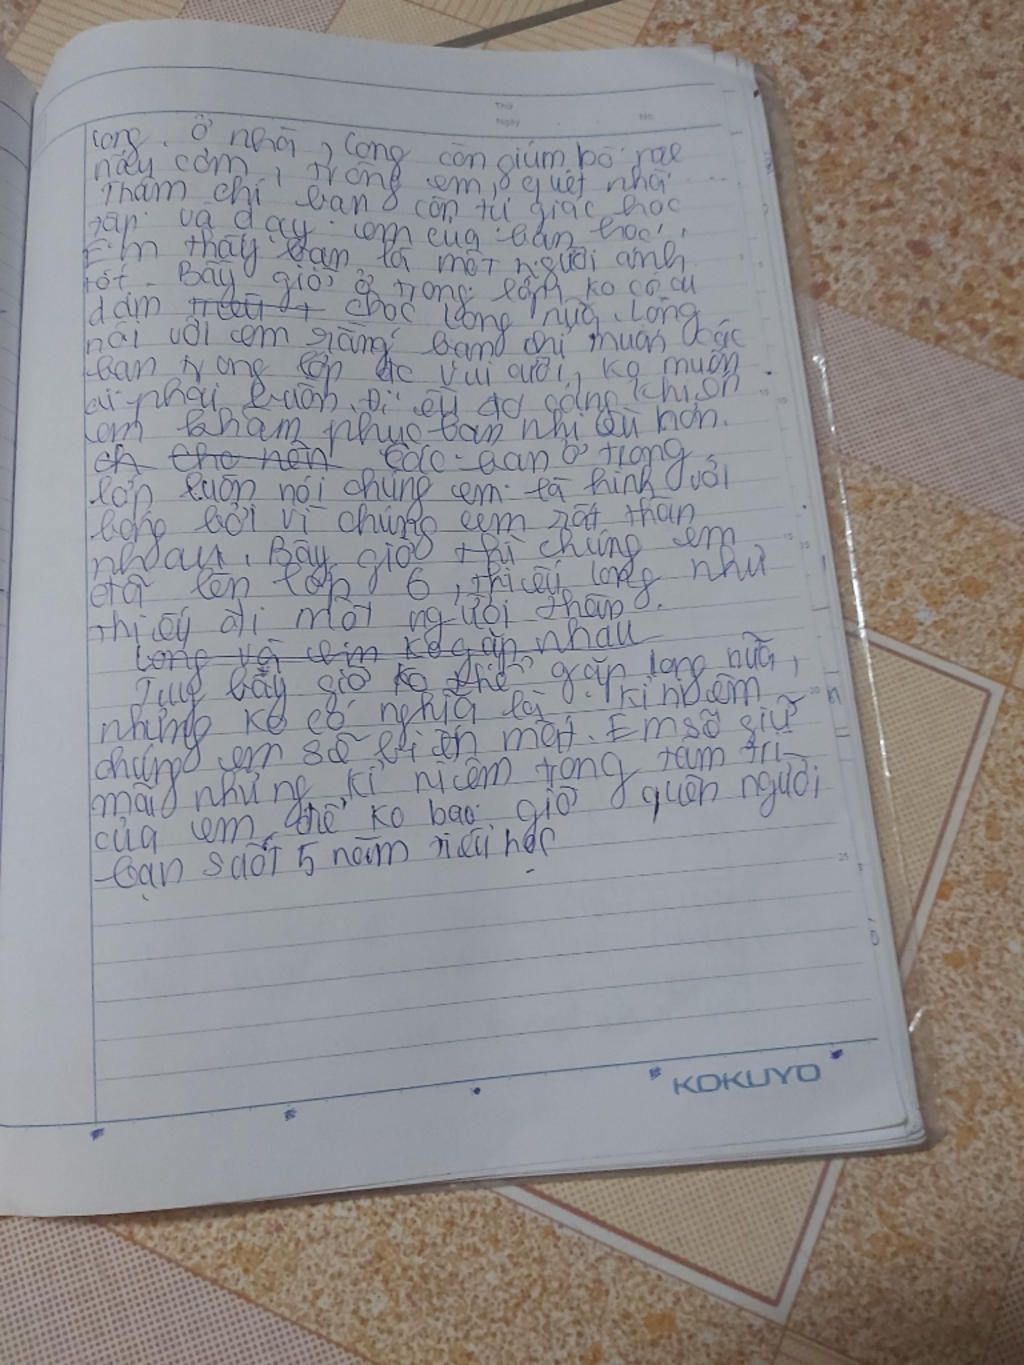 Thứ
Ngày No.
long. Ở nhà, long còn giúm bố mẹ
nấy cơm, trông em, quét nhà
Thậm chí bạn còn tự giác học
tập và dạy em của bạn học.
Em thấy bạn là một người anh
tốt. Bây giờ ở trong lớp ko có ai
dám chọc long nữa. Long
nói với em rằng bạn chỉ muốn các
bạn trong lớp đc vui cười, ko muốn
ai phải buồn. Điều đó càng khiến
em khâm phục bạn nhiều hơn.
các bạn ở trong
lớp luôn nói chúng em là hình với
bóng bởi vì chúng em rất thân
nhau. Bây giờ thì chúng em
đã lên lớp 6, thiếu long như
thiếu đi một người thân.
long và em ko gặp nhau
Tuy bây giờ ko thể gặp long nữa,
nhưng ko có nghĩa là kỉ niệm
chúng em sẽ biến mất. Em sẽ giữ
mãi những kỉ niệm trong tâm trí
của em để ko bao giờ quên người
bạn suốt 5 năm tiểu học
KOKUYO